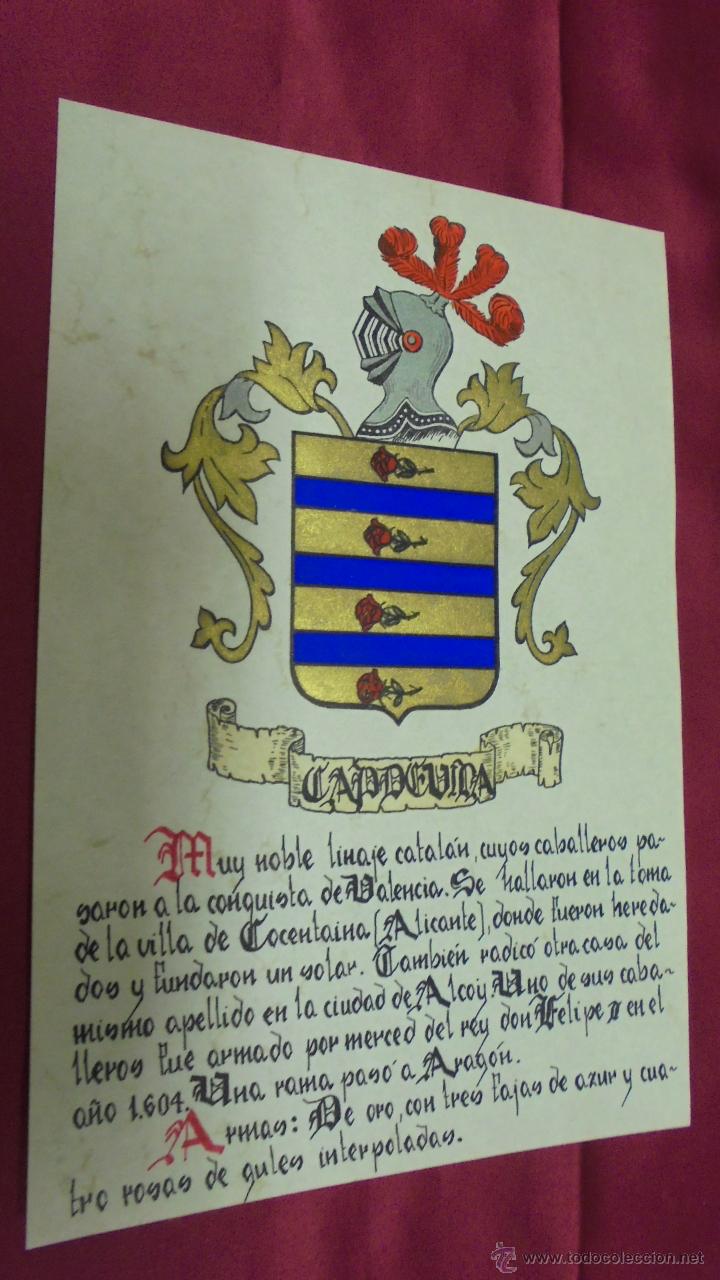 CAPDEVILA
Muy noble linaje catalán, cuyos caballeros pa-
saron a la conquista de Valencia. Se hallaron en la toma
de la villa de Cocentaina (Alicante), donde fueron hereda-
dos y fundaron un solar. También radicó otra casa del
mismo apellido en la ciudad de Alcoy. Uno de sus caba-
lleros fue armado por merced del rey don Felipe en el
año 1.604. Una rama pasó a Aragón.
Armas: De oro, con tres fajas de azur y cua-
tro rosas de gules interpoladas.
www.todocoleccion.net